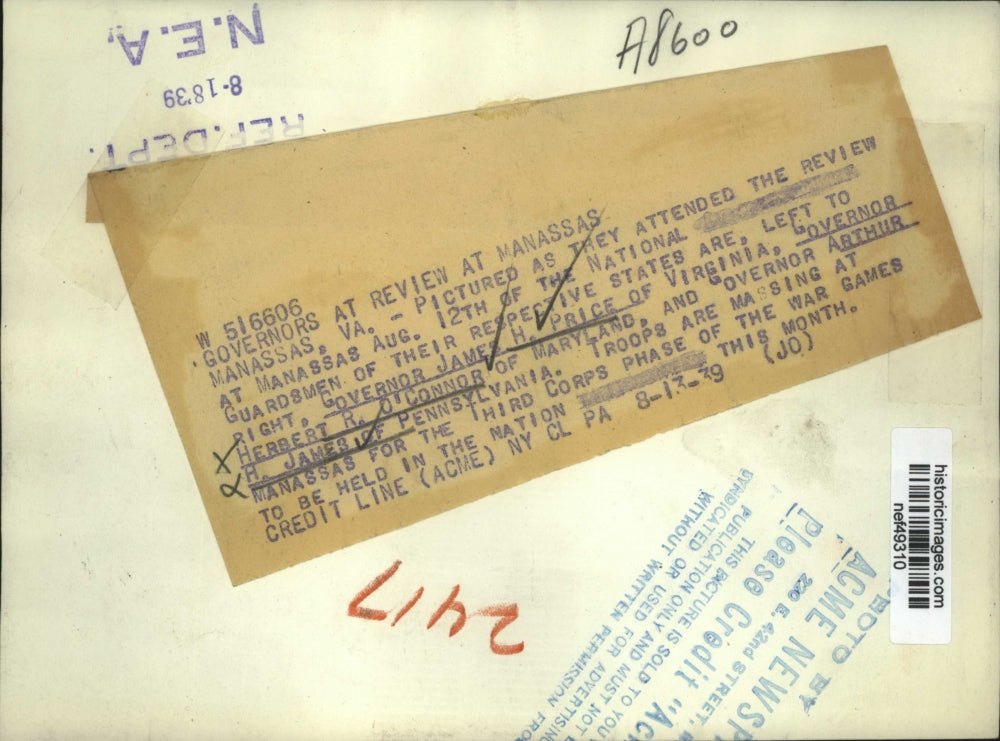 N.E.A.
8-18'39
REF. DEPT.
A8600
W 516606
GOVERNORS AT REVIEW AT MANASSAS
MANASSAS, VA. - PICTURED AS THEY ATTENDED THE REVIEW
AT MANASSAS AUG. 12TH OF THE NATIONAL
GUARDSMEN OF THEIR RESPECTIVE STATES ARE, LEFT TO
RIGHT, GOVERNOR JAMES H. PRICE OF VIRGINIA, GOVERNOR
HERBERT R. O'CONNOR OF MARYLAND, AND GOVERNOR ARTHUR
H. JAMES OF PENNSYLVANIA. TROOPS ARE MASSING AT
MANASSAS FOR THE THIRD CORPS PHASE OF THE WAR GAMES
TO BE HELD IN THE NATION THIS MONTH.
CREDIT LINE (ACME) NY CL PA 8-13-39 (JO)
2417
historicimages.com
nef49310
BY
ACME NEWSP
220 E. 42nd STREET,
Please Credit "AC
THIS PICTURE IS SOLD TO YOU
PUBLICATION ONLY AND MUST NOT
SYNDICATED OR USED FOR ADVERTISING
WITHOUT WRITTEN PERMISSION FRO